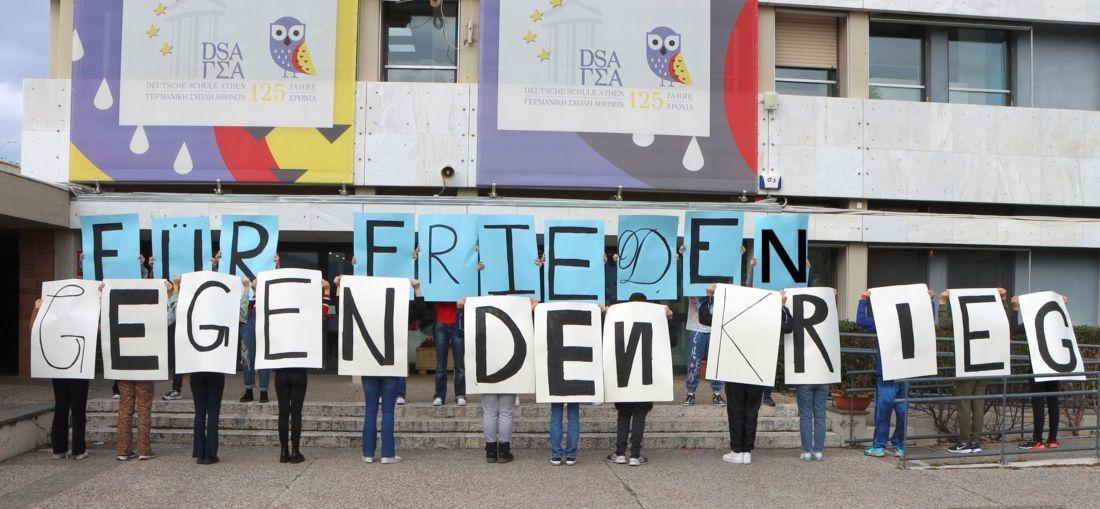 DSA
ΓΣΑ
DEUTSCHE SCHULE ATHEN
ΓΕΡΜΑΝΙΚΗ ΣΧΟΛΗ ΑΘΗΝΩΝ
125 JAHRE
ΧΡΟΝΙΑ
DSA
ΓΣΑ
DEUTSCHE SCHULE ATHEN
ΓΕΡΜΑΝΙΚΗ ΣΧΟΛΗ ΑΘΗΝΩΝ
125 JAHRE
ΧΡΟΝΙΑ
FÜR FRIEDEN
GEGEN DEN KRIEG